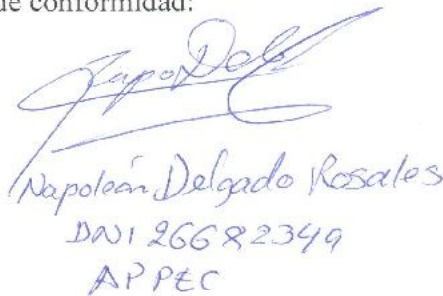 de conformidad:
Napoleón Delgado Rosales
DNI 26682349
APPEC